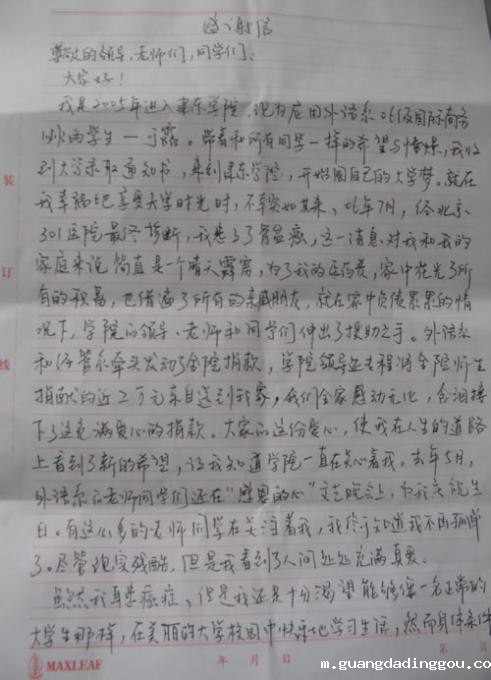 感谢信
尊敬的领导，老师们，同学们：
大家好！
我是2005年进入东学院，现为应用外语系06级国际商务
班的学生——于露。带着和所有同学一样的希望与憧憬，我收
到大学录取通知书，来到东学院，开始圆自己的大学梦。就在
我幸福地享受大学时光时，不幸突如其来，06年7月，经北京
301医院最终诊断，我患了骨盆癌，这一消息对我和我的
家庭来说简直是一个晴天霹雳，为了我的医药费，家中花光了所
有的积蓄，也借遍了所有的亲戚朋友，就在家中负债累累的情
况下，学院的领导、老师和同学们伸出了援助之手。外语系
和经管系牵头发动了全院捐款，学院领导亲程将全院师生
捐献的近2万元亲自送到我家，我们全家感动无比，含泪接
下了这充满爱心的捐款。大家的这份爱心，使我在人生的道路
上看到了新的希望，让我知道学院一直在关心着我。去年5月，
外语系的老师同学们还在“感恩的心”文艺晚会上，为我庆祝生
日。有这么多的老师同学在关注着我，我终于知道我不再孤单
了。尽管现实残酷，但是我看到了人间处处充满真爱。
虽然我身患癌症，但是我还是十分渴望能够像一名正常的
大学生那样，在美丽的大学校园中快乐地学习生活，然而身体条件
装
订
线
MAXLEAF
年 月 日
第 页
m.guangdadinggou.co